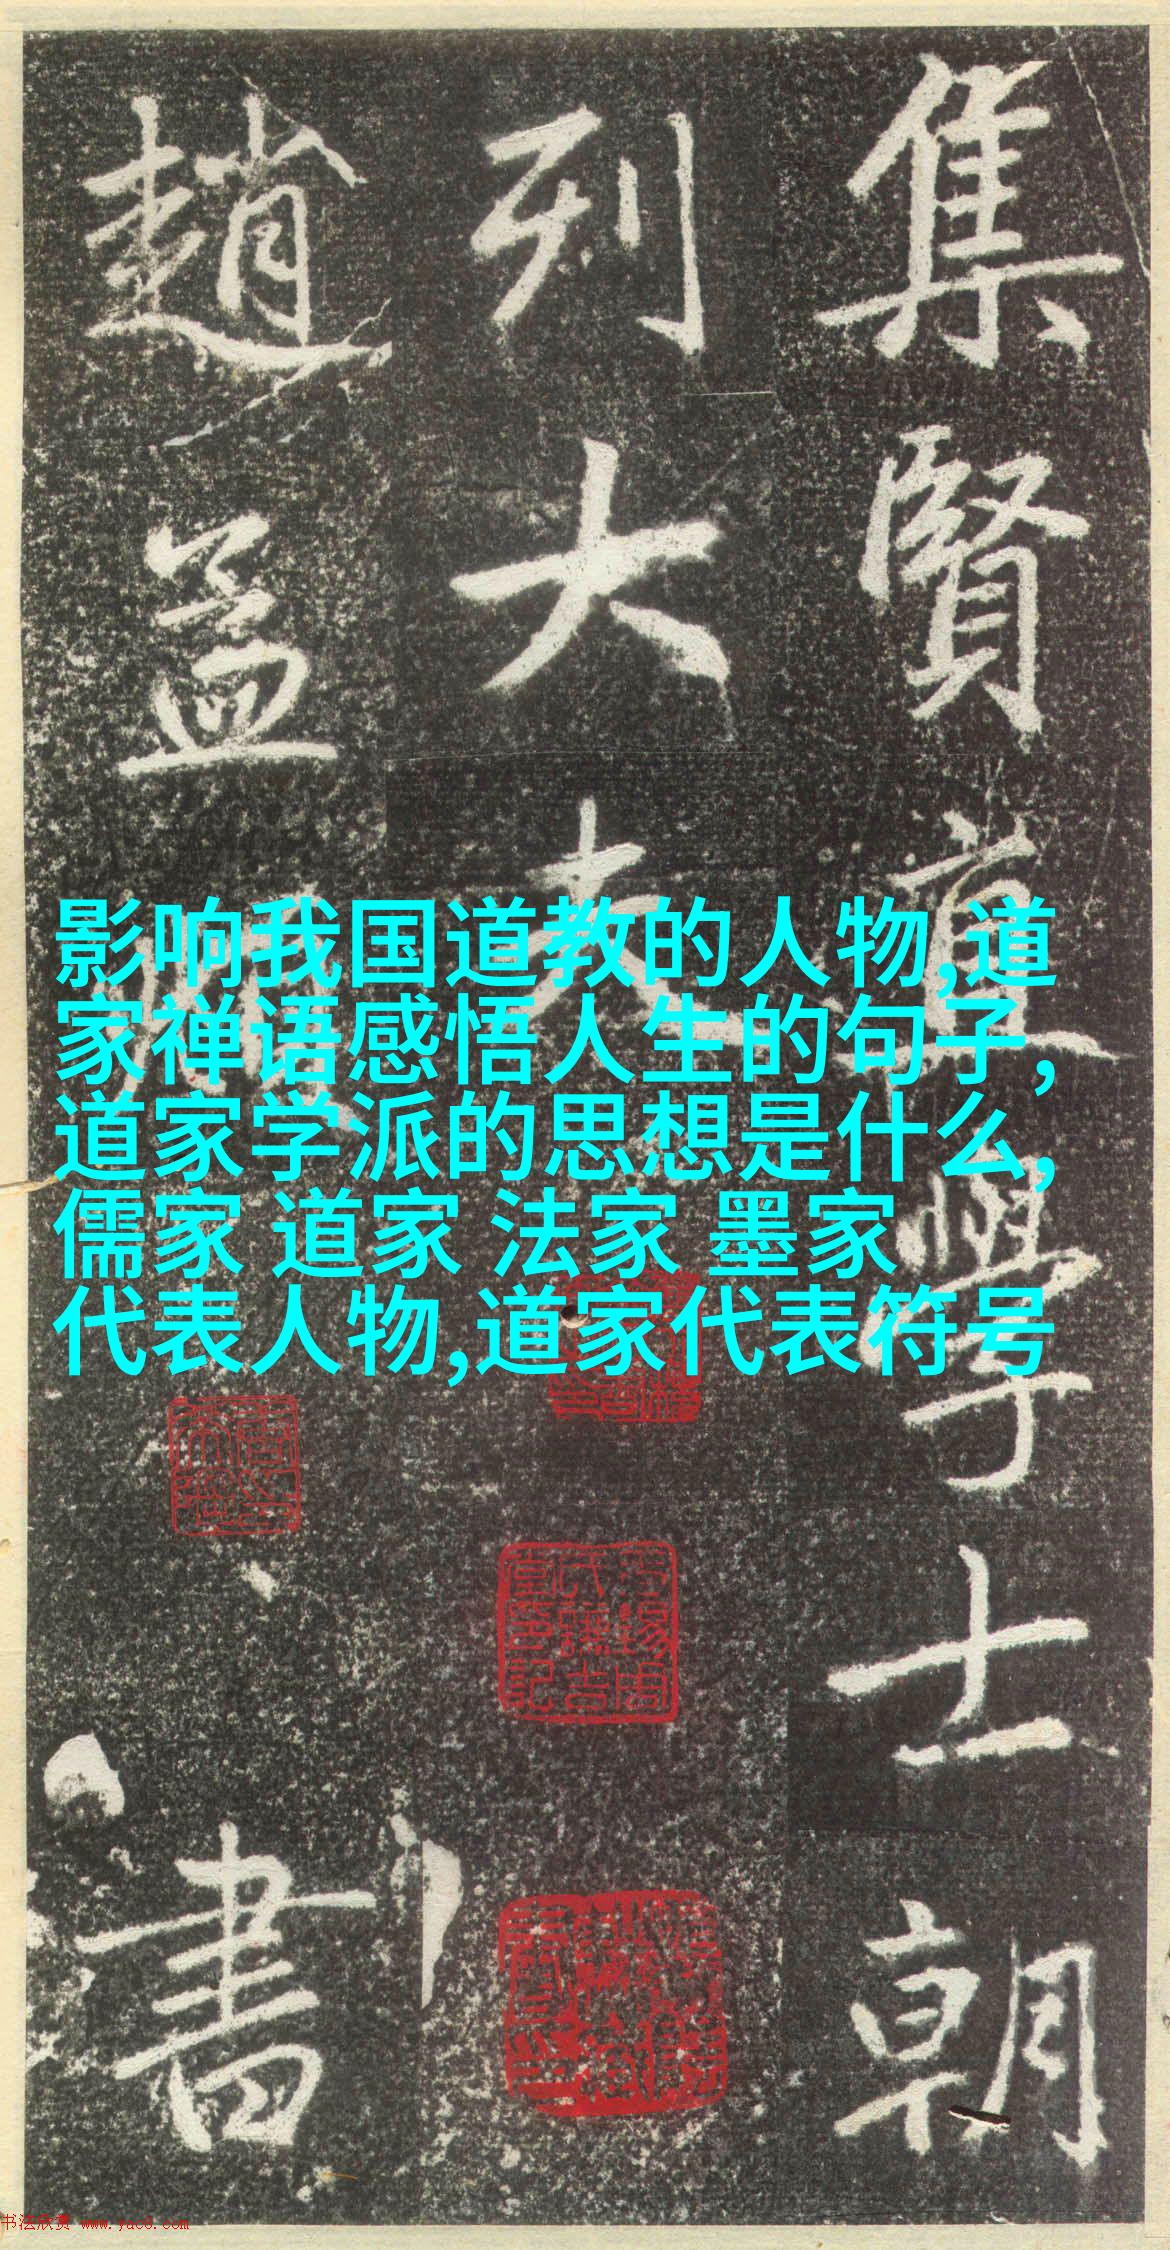 集賢直學士朝
列大夫
趙孟
書
影响我国道教的人物,道
家禅语感悟人生的句子,
道家学派的思想是什么,
儒家 道家 法家 墨家
代表人物,道家代表符号
书法欣赏 www.yac8.com